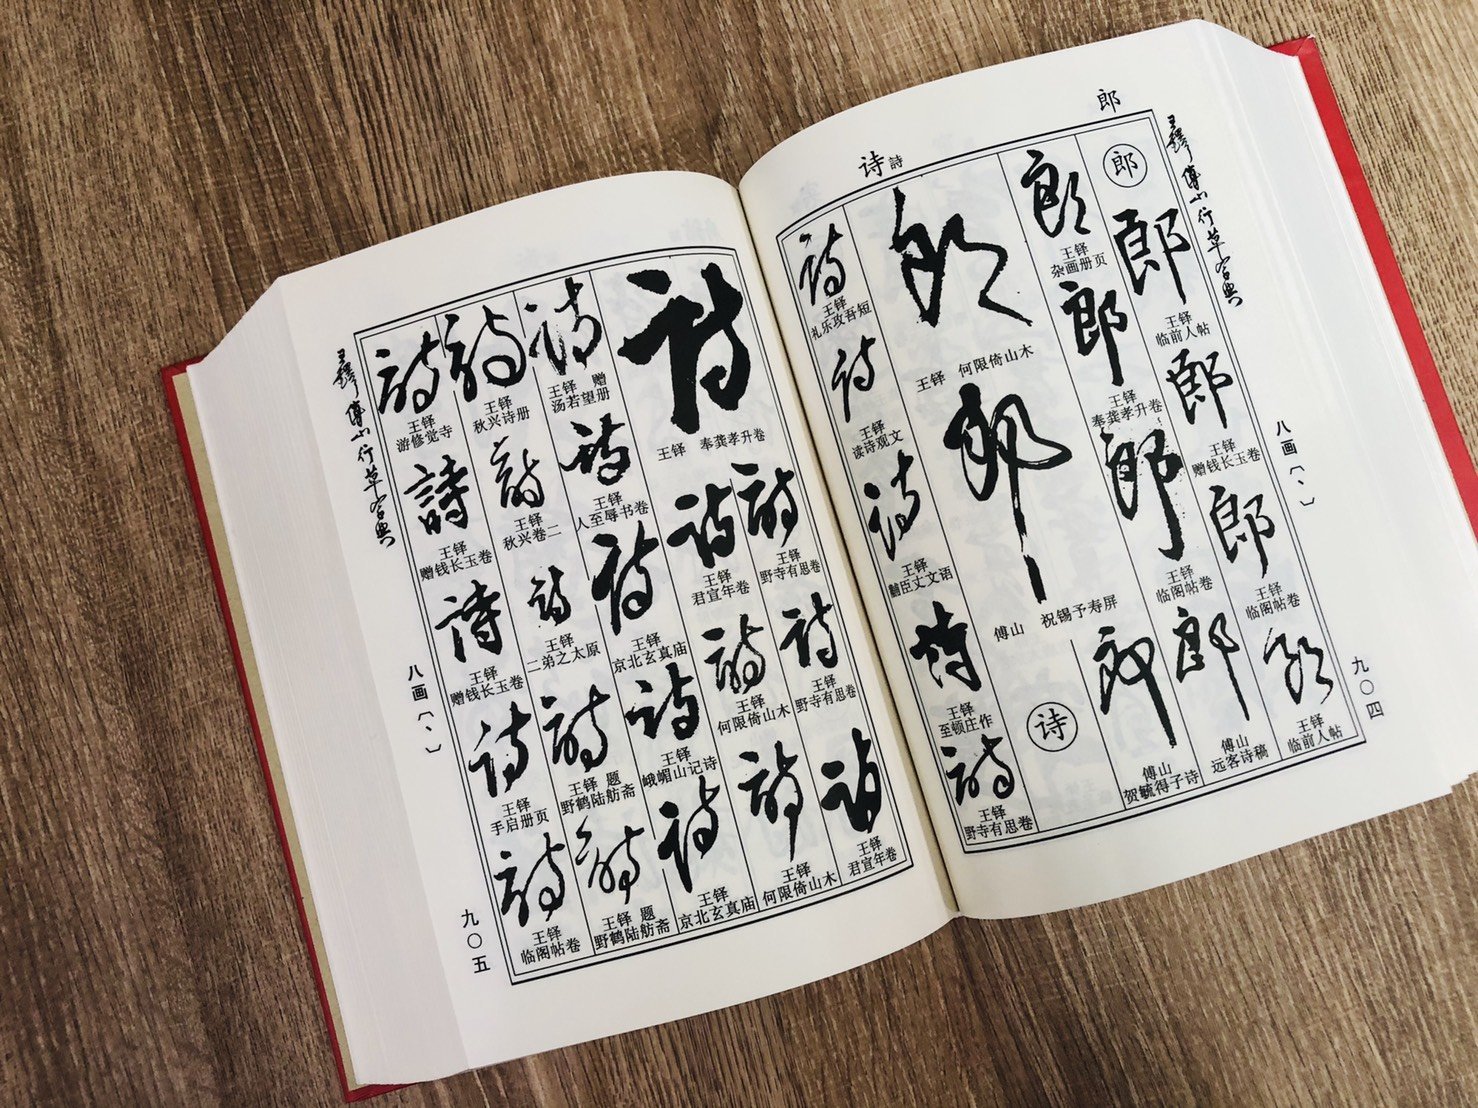 郎
诗 詩
王鐸傅山行草字典
八画〔丶〕
九〇四
郎
郎
王铎
临前人帖
郎
王铎
赠钱长玉卷
郎
王铎
临阁帖卷
郎
王铎
临前人帖
郎
王铎
杂画册页
郎
王铎
奉龚孝升卷
郎
王铎
临阁帖卷
郎
傅山
远客诗稿
郎
傅山
贺毓得子诗
郎
王铎 何限倚山木
郎
傅山 祝锡予寿屏
诗
詩
王铎
礼乐攻吾短
詩
王铎
读诗观文
詩
王铎
臣丈文语
詩
王铎
至顿庄作
詩
王铎
野寺有思卷
詩
王铎 奉龚孝升卷
詩
王铎
野寺有思卷
詩
王铎
野寺有思卷
詩
王铎
君宣年卷
詩
王铎
君宣年卷
詩
王铎
何限倚山木
詩
王铎
何限倚山木
詩
王铎 赠
汤若望册
詩
王铎
人至辱书卷
詩
王铎
京北玄真庙
詩
王铎
峨嵋山记诗
詩
王铎
京北玄真庙
詩
王铎
秋兴诗册
詩
王铎
秋兴卷二
詩
王铎
二弟之太原
詩
王铎 题
野鹤陆舫斋
詩
王铎 题
野鹤陆舫斋
詩
王铎
游修觉寺
詩
王铎
赠钱长玉卷
詩
王铎
赠钱长玉卷
詩
王铎
手启册页
詩
王铎
临阁帖卷
王鐸傅山行草字典
八画〔丶〕
九〇五